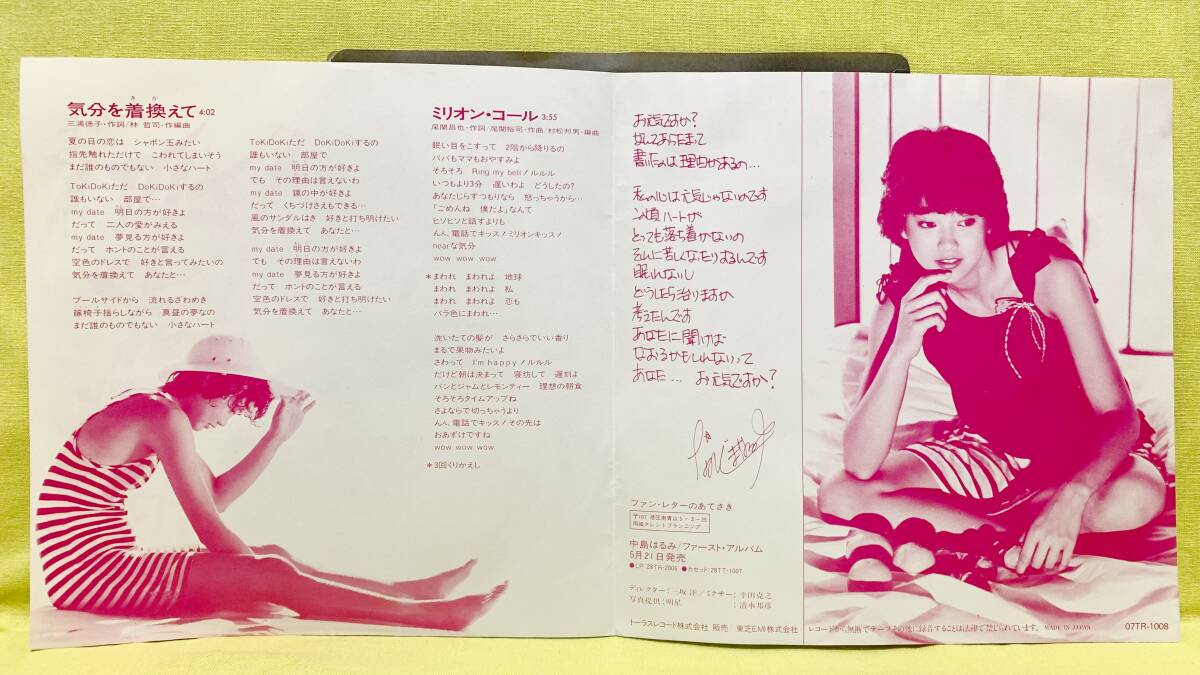 気分を着換えて 4:02
三浦徳子・作詞/林 哲司・作編曲
夏の日の恋は シャボン玉みたい
指先触れただけで こわれてしまいそう
まだ誰のものでもない 小さなハート
ToKiDoKiただ DoKiDoKiするの
誰もいない 部屋で…
my date 明日の方が好きよ
だって 二人の愛がみえる
my date 夢見る方が好きよ
だって ホントのことが言える
空色のドレスで 好きと言ってみたいの
気分を着換えて あなたと…
プールサイドから 流れるざわめき
籐椅子揺らしながら 真昼の夢なの
まだ誰のものでもない 小さなハート
ToKiDoKiただ DoKiDoKiするの
誰もいない 部屋で
my date 明日の方が好きよ
でも その理由は言えないわ
my date 鏡の中が好きよ
だって くちづけさえもできる…
風のサンダルはき 好きと打ち明けたい
気分を着換えて あなたと…
my date 明日の方が好きよ
でも その理由は言えないわ
my date 夢見る方が好きよ
だって ホントのことが言える
空色のドレスで 好きと打ち明けたい
気分を着換えて あなたと…
ミリオン・コール 3:55
尾関昌也・作詞/尾関裕司・作曲/村松邦男・編曲
眠い目をこすって 2階から降りるの
パパもママもおやすみよ
そろそろ Ring my bell!ルルル
いつもより3分 遅いわよ どうしたの?
あなたじらすつもりなら 怒っちゃうから…
「ごめんね 僕だよ」なんて
ヒソヒソと話すよりも
んん、電話でキッス!ミリオンキッス!
nearな気分
wow wow wow
*まわれ まわれよ 地球
まわれ まわれよ 私
まわれ まわれよ 恋も
バラ色にまわれ…
洗いたての髪が さらさらでいい香り
まるで果物みたいよ
さわって I'm happy!ルルル
だけど朝は決まって 寝坊して 遅刻よ
パンとジャムとレモンティー 理想の朝食
そろそろタイムアップね
さよならで切っちゃうより
んん、電話でキッス!その先は
おあずけですね
wow wow wow
*3回くりかえし
お元気ですか?
なんてあらたまって
書いたのは理由があるの…
私の心は元気じゃないのです
この頃ハートが
とっても落ち着かないの
そんに苦しくなったりするんです
眠れないし
どうしたら治りますか
考えたんです
あなたに聞けば
なおるかもしれないって
あなた… お元気ですか?
ファン・レターのあてさき
〒107 港区南青山5-3-25
中島はるみ/ファースト・アルバム
5月21日発売
●LP:28TR-2006 ●カセット:28TT-1007
ディレクター:三坂 洋/ミクサー:半田克之
写真提供:明星 :清水邦彦
トーラスレコード株式会社 販売 東芝EMI株式会社
レコードから無断でテープその他に録音することは法律で禁じられています。 MADE IN JAPAN
07TR-1008